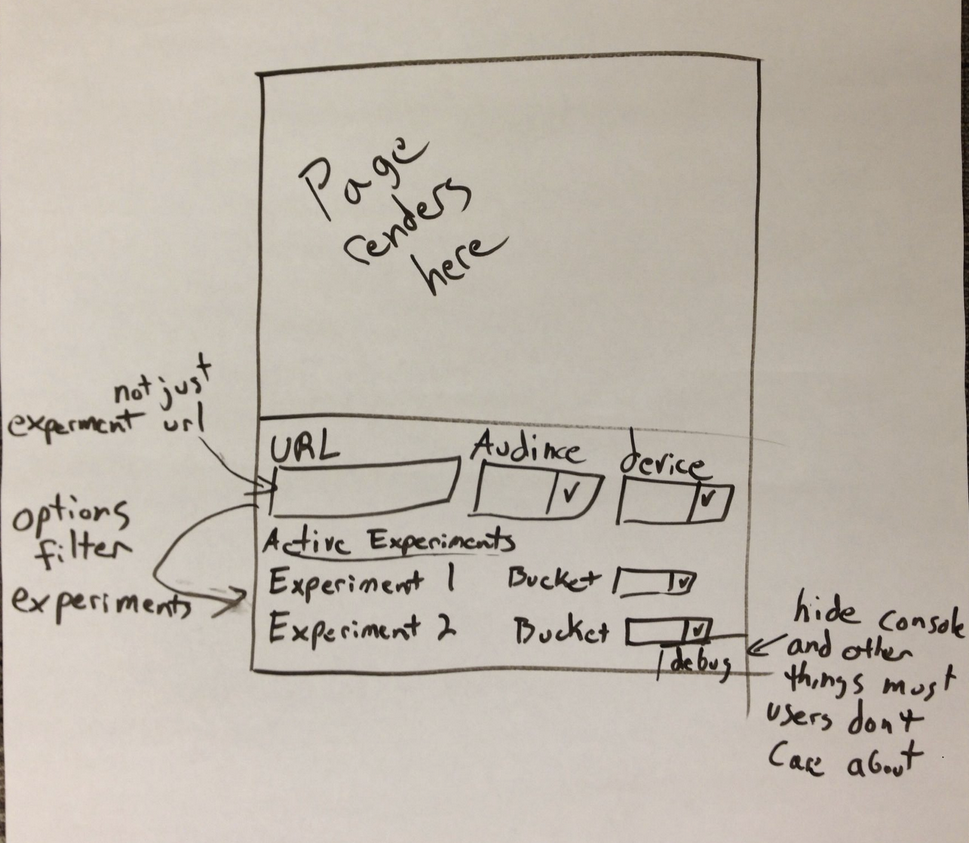 Page
renders
here
not just
experment url
URL
Audince
device
options
filter
experiments
Active Experiments
Experiment 1 Bucket
Experiment 2 Bucket
debug
hide console
and other
things most
users don't
care about